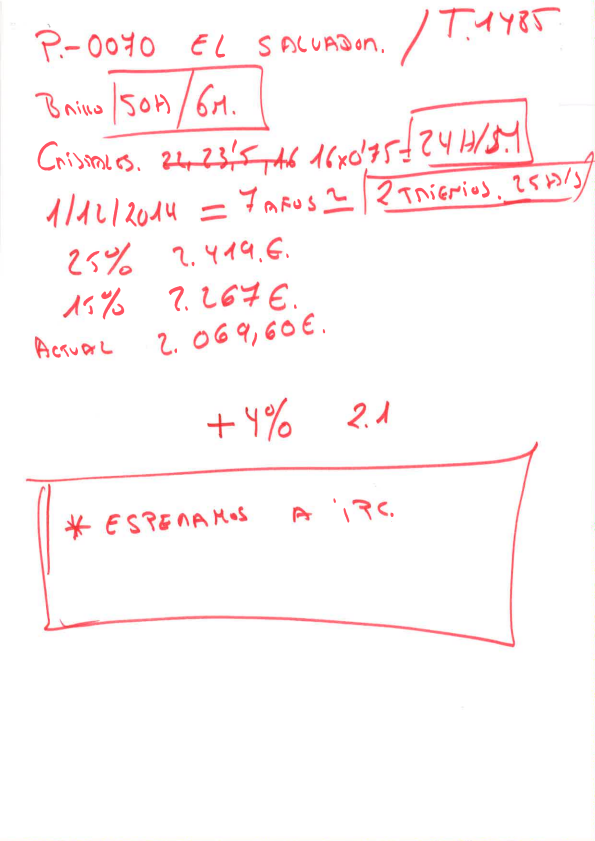 P.-0070 EL SALVADOR. / T.1485
BRILLO 50H/6M.
CRISTALES. 22, 23,5, 16 16x0'75= 24H/S.1
1/12/2014 = 7 AÑOS = 2 TRIENIOS. 25H/S
25% 2.419.€.
15% 2.267€.
ACTUAL 2.069,60€.
+4% 2.1
* ESPERAMOS A IPC.